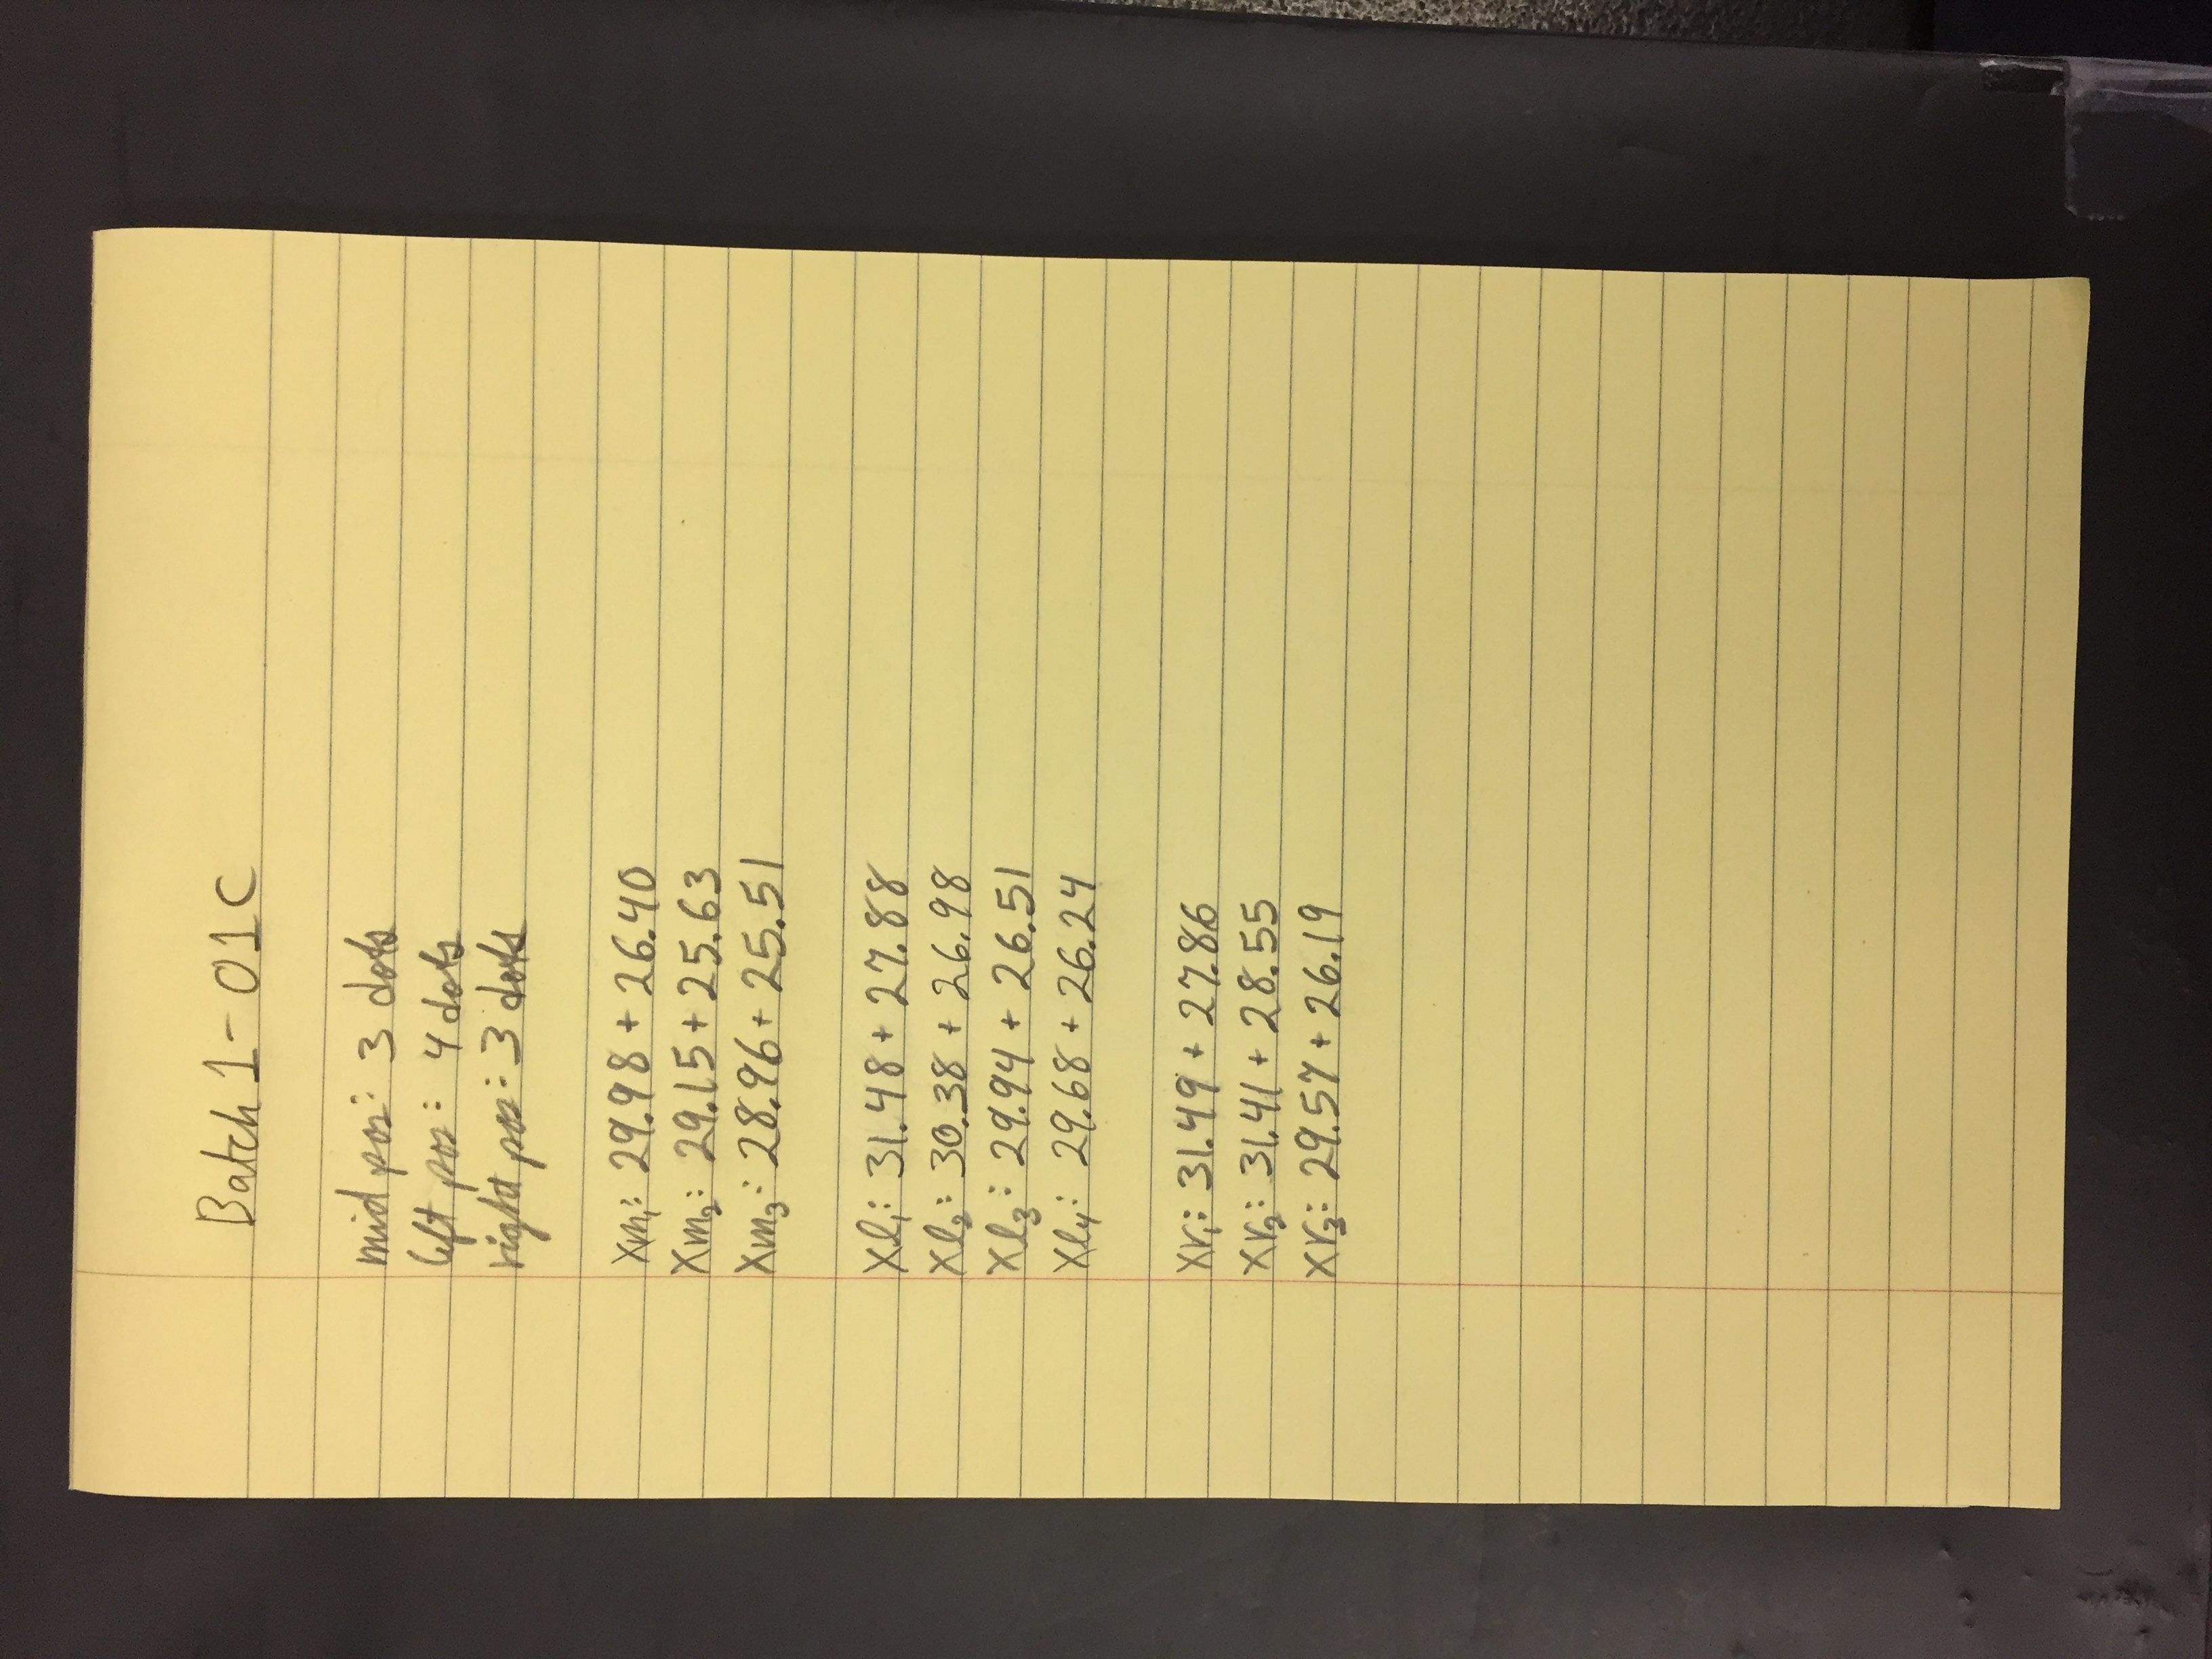 Batch 1-01C
mid pos: 3 dots
left pos: 4 dots
right pos: 3 dots
Xm₁: 29.98 + 26.40
Xm₂: 29.15 + 25.63
Xm₃: 28.96 + 25.51
Xl₁: 31.48 + 27.88
Xl₂: 30.38 + 26.98
Xl₃: 29.94 + 26.51
Xl₄: 29.68 + 26.24
Xr₁: 31.49 + 27.86
Xr₂: 31.41 + 28.55
Xr₃: 29.57 + 26.19